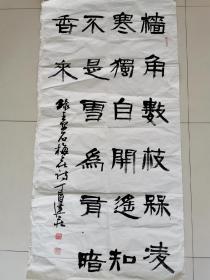 牆角數枝槑凌
寒獨自開遙知
不是雪為有暗
香來
錄王安石梅花詩丁酉